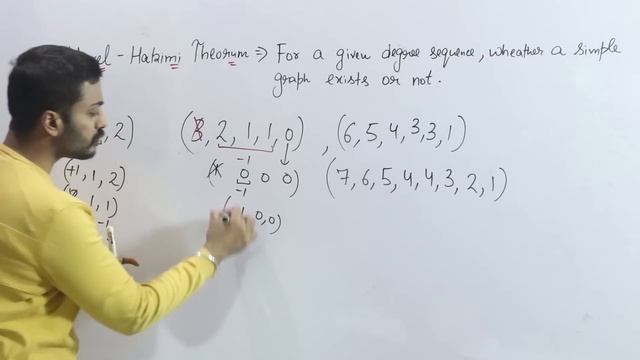 - Hakimi Theorum ⇒ For a given degree sequence, wheather a simple
graph exists or not.
, 2)
(3, 2, 1, 1, 0) , (6, 5, 4, 3, 3, 1)
1, 1, 2)
-1
0 0 0)
(7, 6, 5, 4, 4, 3, 2, 1)
1, 1)
-1
0, 0)